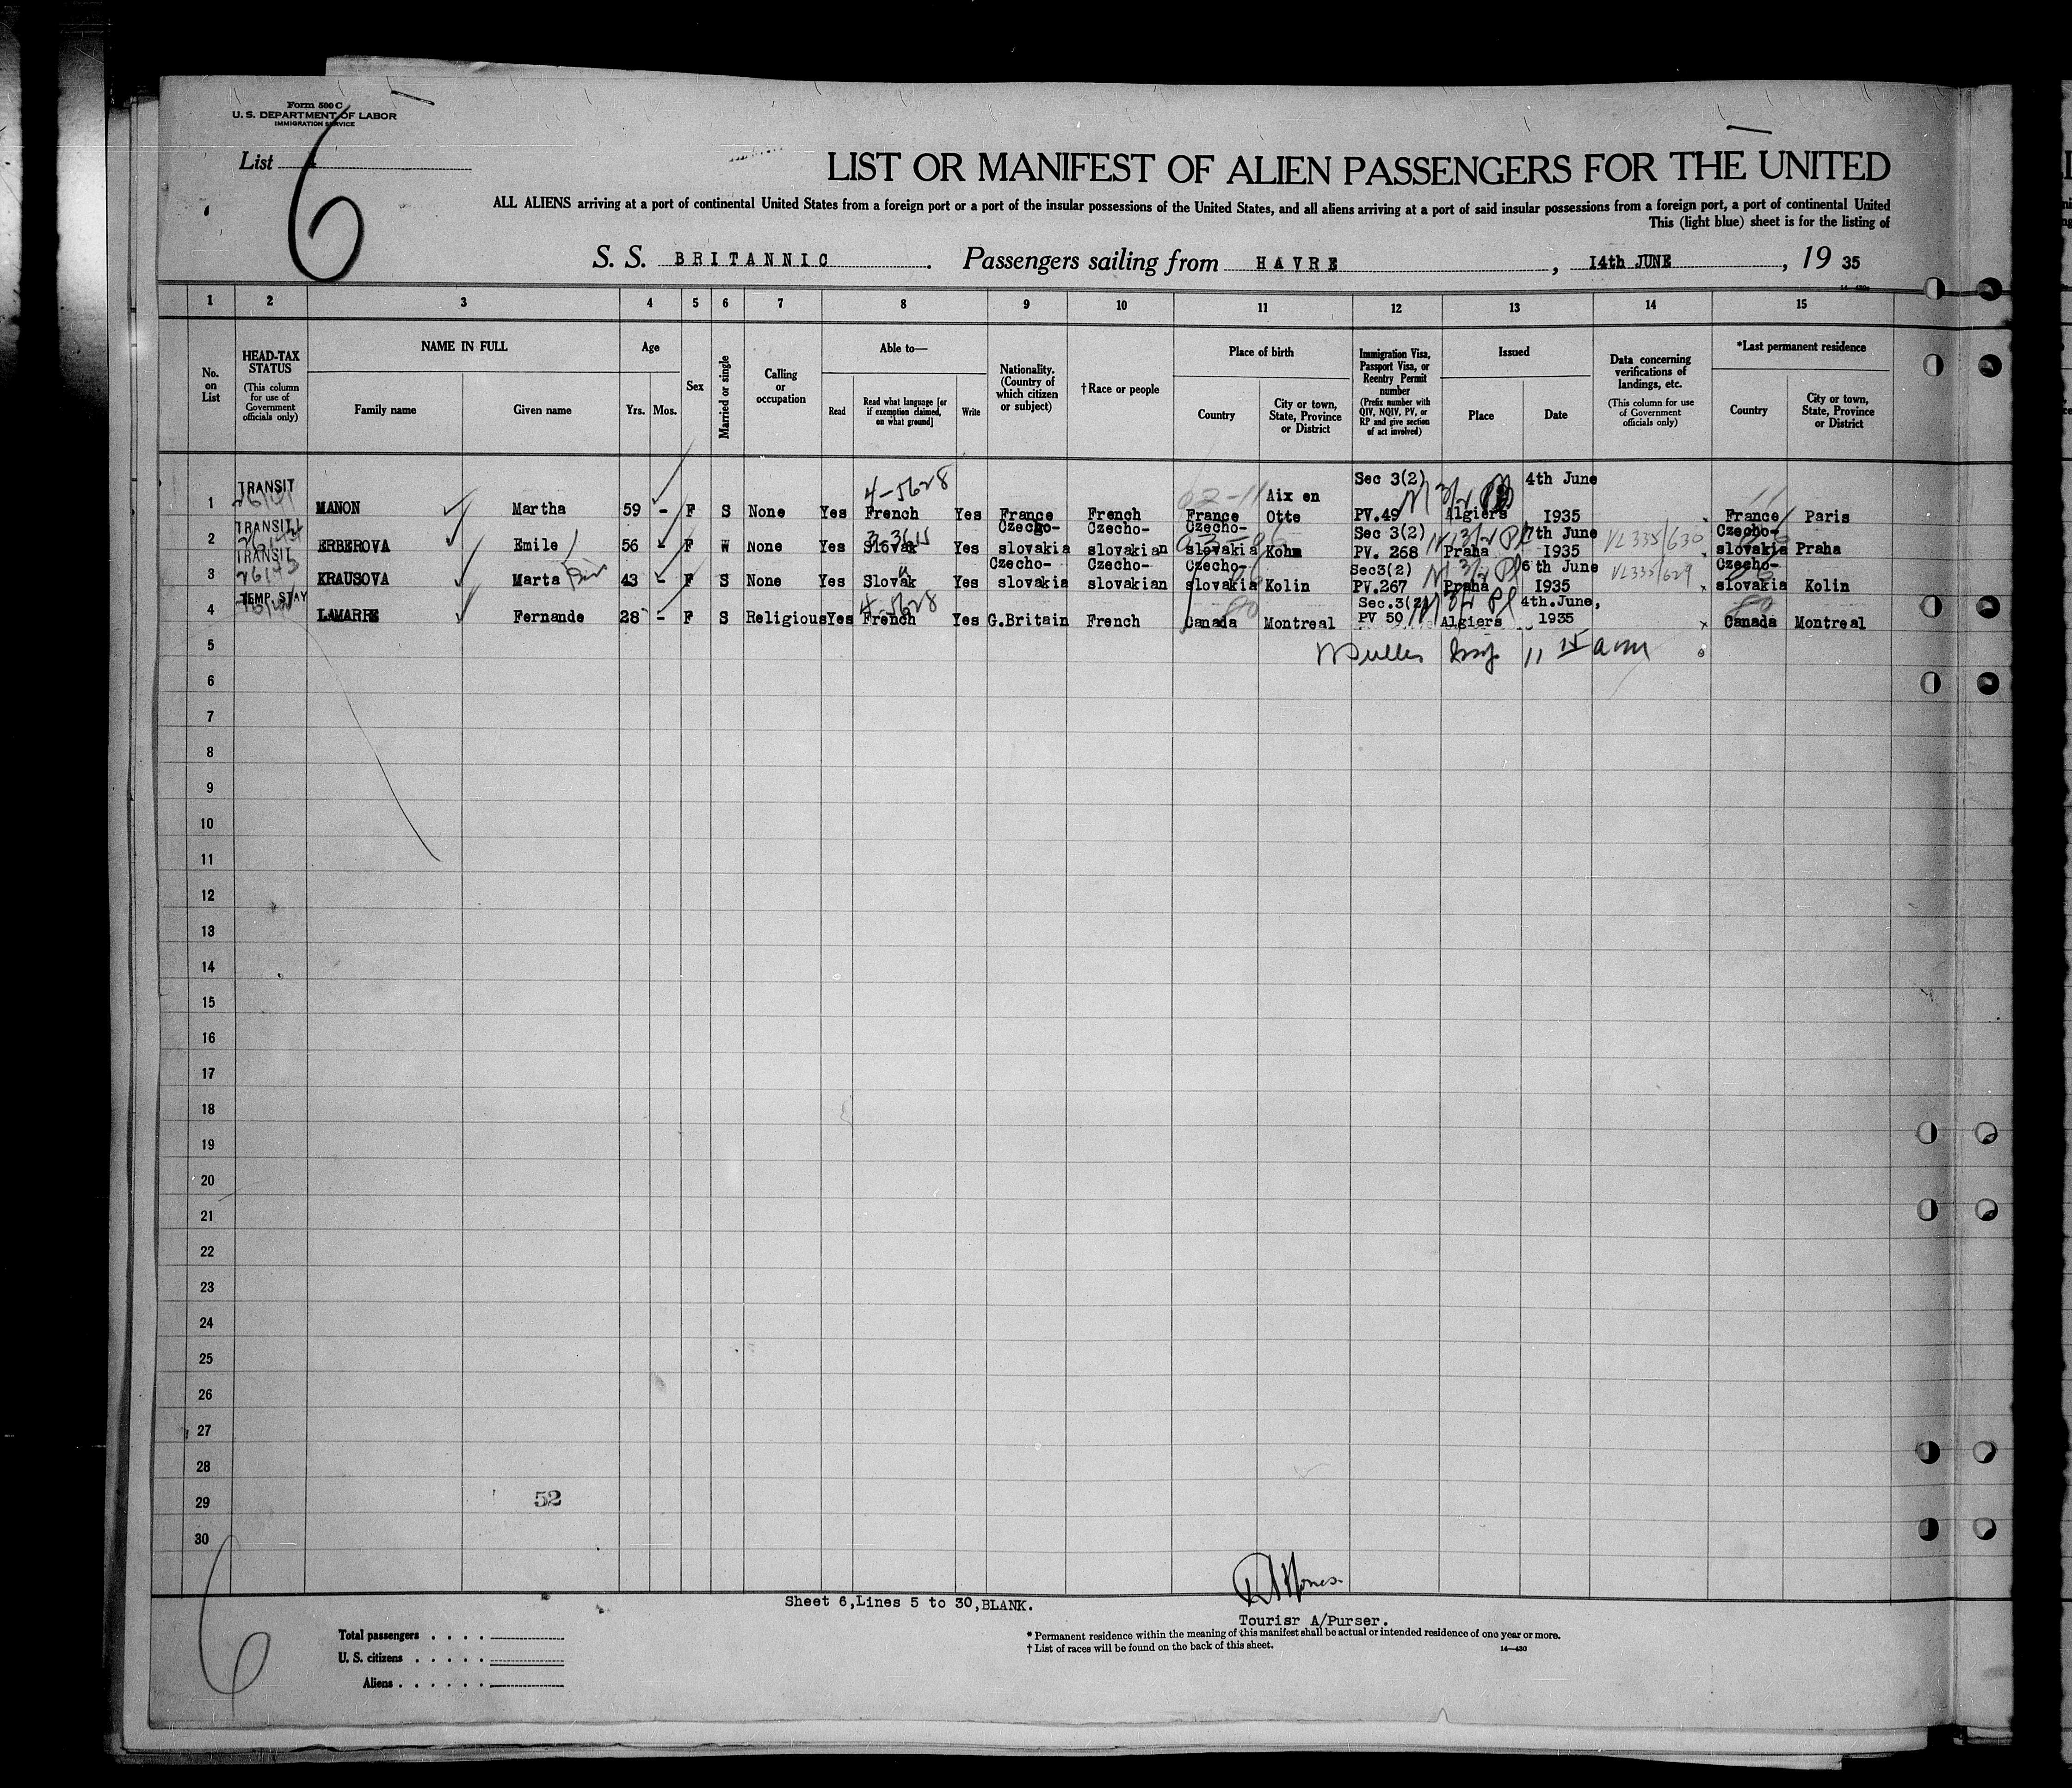 Form 500 C
U. S. DEPARTMENT OF LABOR
IMMIGRATION SERVICE
List
6
LIST OR MANIFEST OF ALIEN PASSENGERS FOR THE UNITED
ALL ALIENS arriving at a port of continental United States from a foreign port or a port of the insular possessions of the United States, and all aliens arriving at a port of said insular possessions from a foreign port, a port of continental United
This (light blue) sheet is for the listing of
S. S. BRITANNIC. Passengers sailing from HAVRE, 14th JUNE, 19 35
1 2 3 4 5 6 7 8 9 10 11 12 13 14 15
No. on List
HEAD-TAX STATUS (This column for use of Government officials only)
NAME IN FULL
Family name Given name
Age
Yrs. Mos.
Sex
Married or single
Calling or occupation
Able to—
Read Read what language [or if exemption claimed, on what ground] Write
Nationality. (Country of which citizen or subject)
†Race or people
Place of birth
Country City or town, State, Province or District
Immigration Visa, Passport Visa, or Reentry Permit number (Prefix number with QIV, NQIV, PV, or RP and give section of act involved)
Issued
Place Date
Data concerning verifications of landings, etc. (This column for use of Government officials only)
*Last permanent residence
Country City or town, State, Province or District
4-5628
1 TRANSIT MANON Martha 59 - F S None Yes French Yes France French France Aix en Otte Sec 3(2) PV.49 Algiers 4th June 1935 France Paris
2 TRANSIT ERBEROVA Emile 56 - F W None Yes Slovak Yes Czecho-slovakia Czecho-slovakian Czecho-slovakia Kohn Sec 3(2) PV. 268 Praha 7th June 1935 VL335/630 Czecho-slovakia Praha
3 TRANSIT KRAUSOVA Marta 43 - F S None Yes Slovak Yes Czecho-slovakia Czecho-slovakian Czecho-slovakia Kolin Sec3(2) PV.267 Praha 6th June 1935 VL335/629 Czecho-slovakia Kolin
4-5628
4 TEMP. STAY LAMARRE Fernande 28 - F S Religious Yes French Yes G.Britain French Canada Montreal Sec.3(2) PV 50 Algiers 4th.June, 1935 Canada Montreal
5
6
7
8
9
10
11
12
13
14
15
16
17
18
19
20
21
22
23
24
25
26
27
28
29
52
30
6
Sheet 6,Lines 5 to 30,BLANK.
Tourisr A/Purser.
Total passengers
U. S. citizens
Aliens
* Permanent residence within the meaning of this manifest shall be actual or intended residence of one year or more.
† List of races will be found on the back of this sheet.
14—430